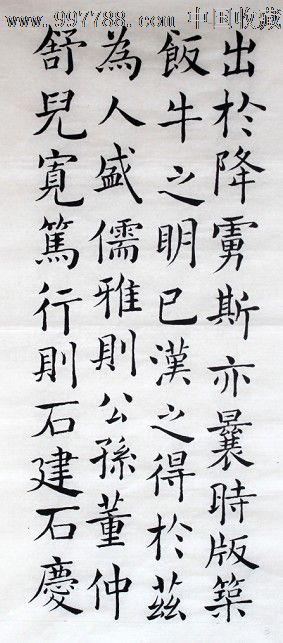 www.997788.com 中国收藏
出於降虜斯亦曩時版築
飯牛之明已漢之得於茲
為人盛儒雅則公孫董仲
舒兒寬篤行則石建石慶